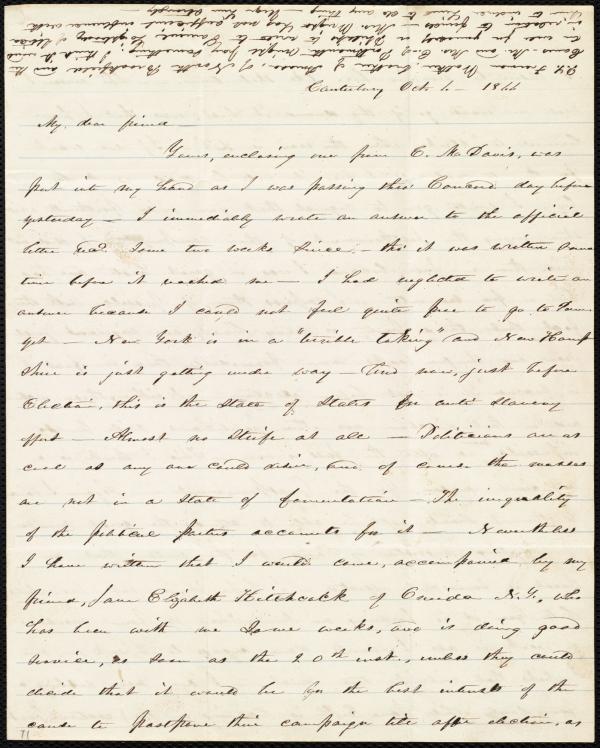 Canterbury Oct. 4 - 1844
My dear friend -
Yours, enclosing one from E. M. Davis, was
put into my hand as I was passing thro' Concord day before
yesterday - I immediately wrote an answer to the official
letter rec'd some two weeks since - tho' it was written some
time before it reached me - I had neglected to write an
answer because I could not feel quite free to go to
yet - New York is in a "terrible taking" and New Hamp
shire is just getting under way - And now, just before
Election, this is the State of States for anti slavery
effort - Almost no strife at all - Politicians are as
cool as any one could desire, and of course the masses
are not in a state of fomentation - The inequality
of the political parties accounts for it - Nevertheless
I have written that I would come, accompanied by my
friend, Jane Elizabeth Hitchcock of Oneida N.Y., who
has been with me some weeks, and is doing good
service, as soon as the 20th inst., unless they could
decide that it would be for the best interests of the
cause to postpone their campaign till after election, as
71